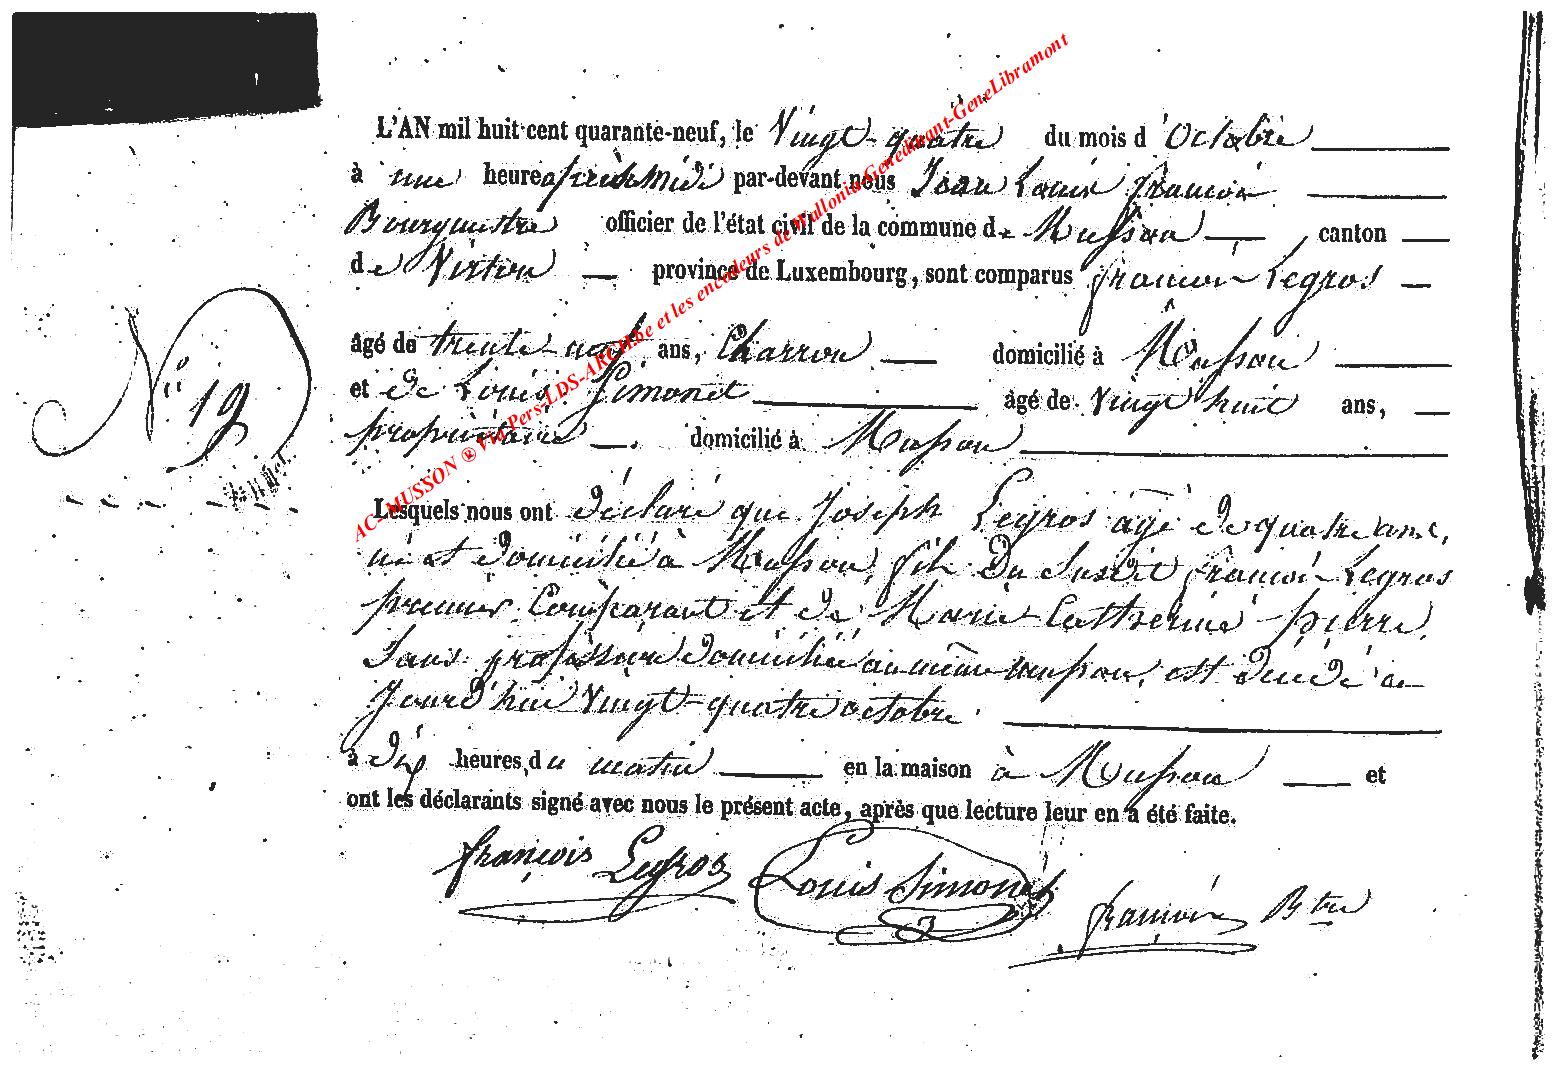 L'AN mil huit cent quarante-neuf, le Vingt-quatre du mois d'Octobre
à une heure après midi par-devant nous Jean Louis françois
Bourgmestre officier de l'état civil de la commune de Musson canton
de Virton province de Luxembourg, sont comparus françois Legros
âgé de trente-neuf ans, Charron domicilié à Musson
et de Louis Simonet âgé de Vingt huit ans,
propriétaire domicilié à Musson
N° 19
Lesquels nous ont déclaré que Joseph Legros agé de quatre ans,
né et domicilié à Musson, fils du susdit françois Legros
premier Comparant et de Marie Catherine pierre,
Sans profession domiciliée au même musson, est décédé au
Jourd'hui Vingt-quatre octobre
à dix heures du matin en la maison à Musson et
ont les déclarants signé avec nous le présent acte, après que lecture leur en a été faite.
françois Legros Louis Simonet françois Btre
AC-MUSSON ® Via Pers-LDS-ARCH.be et les encodeurs de Wallonia-Genedinant-GeneLibramont